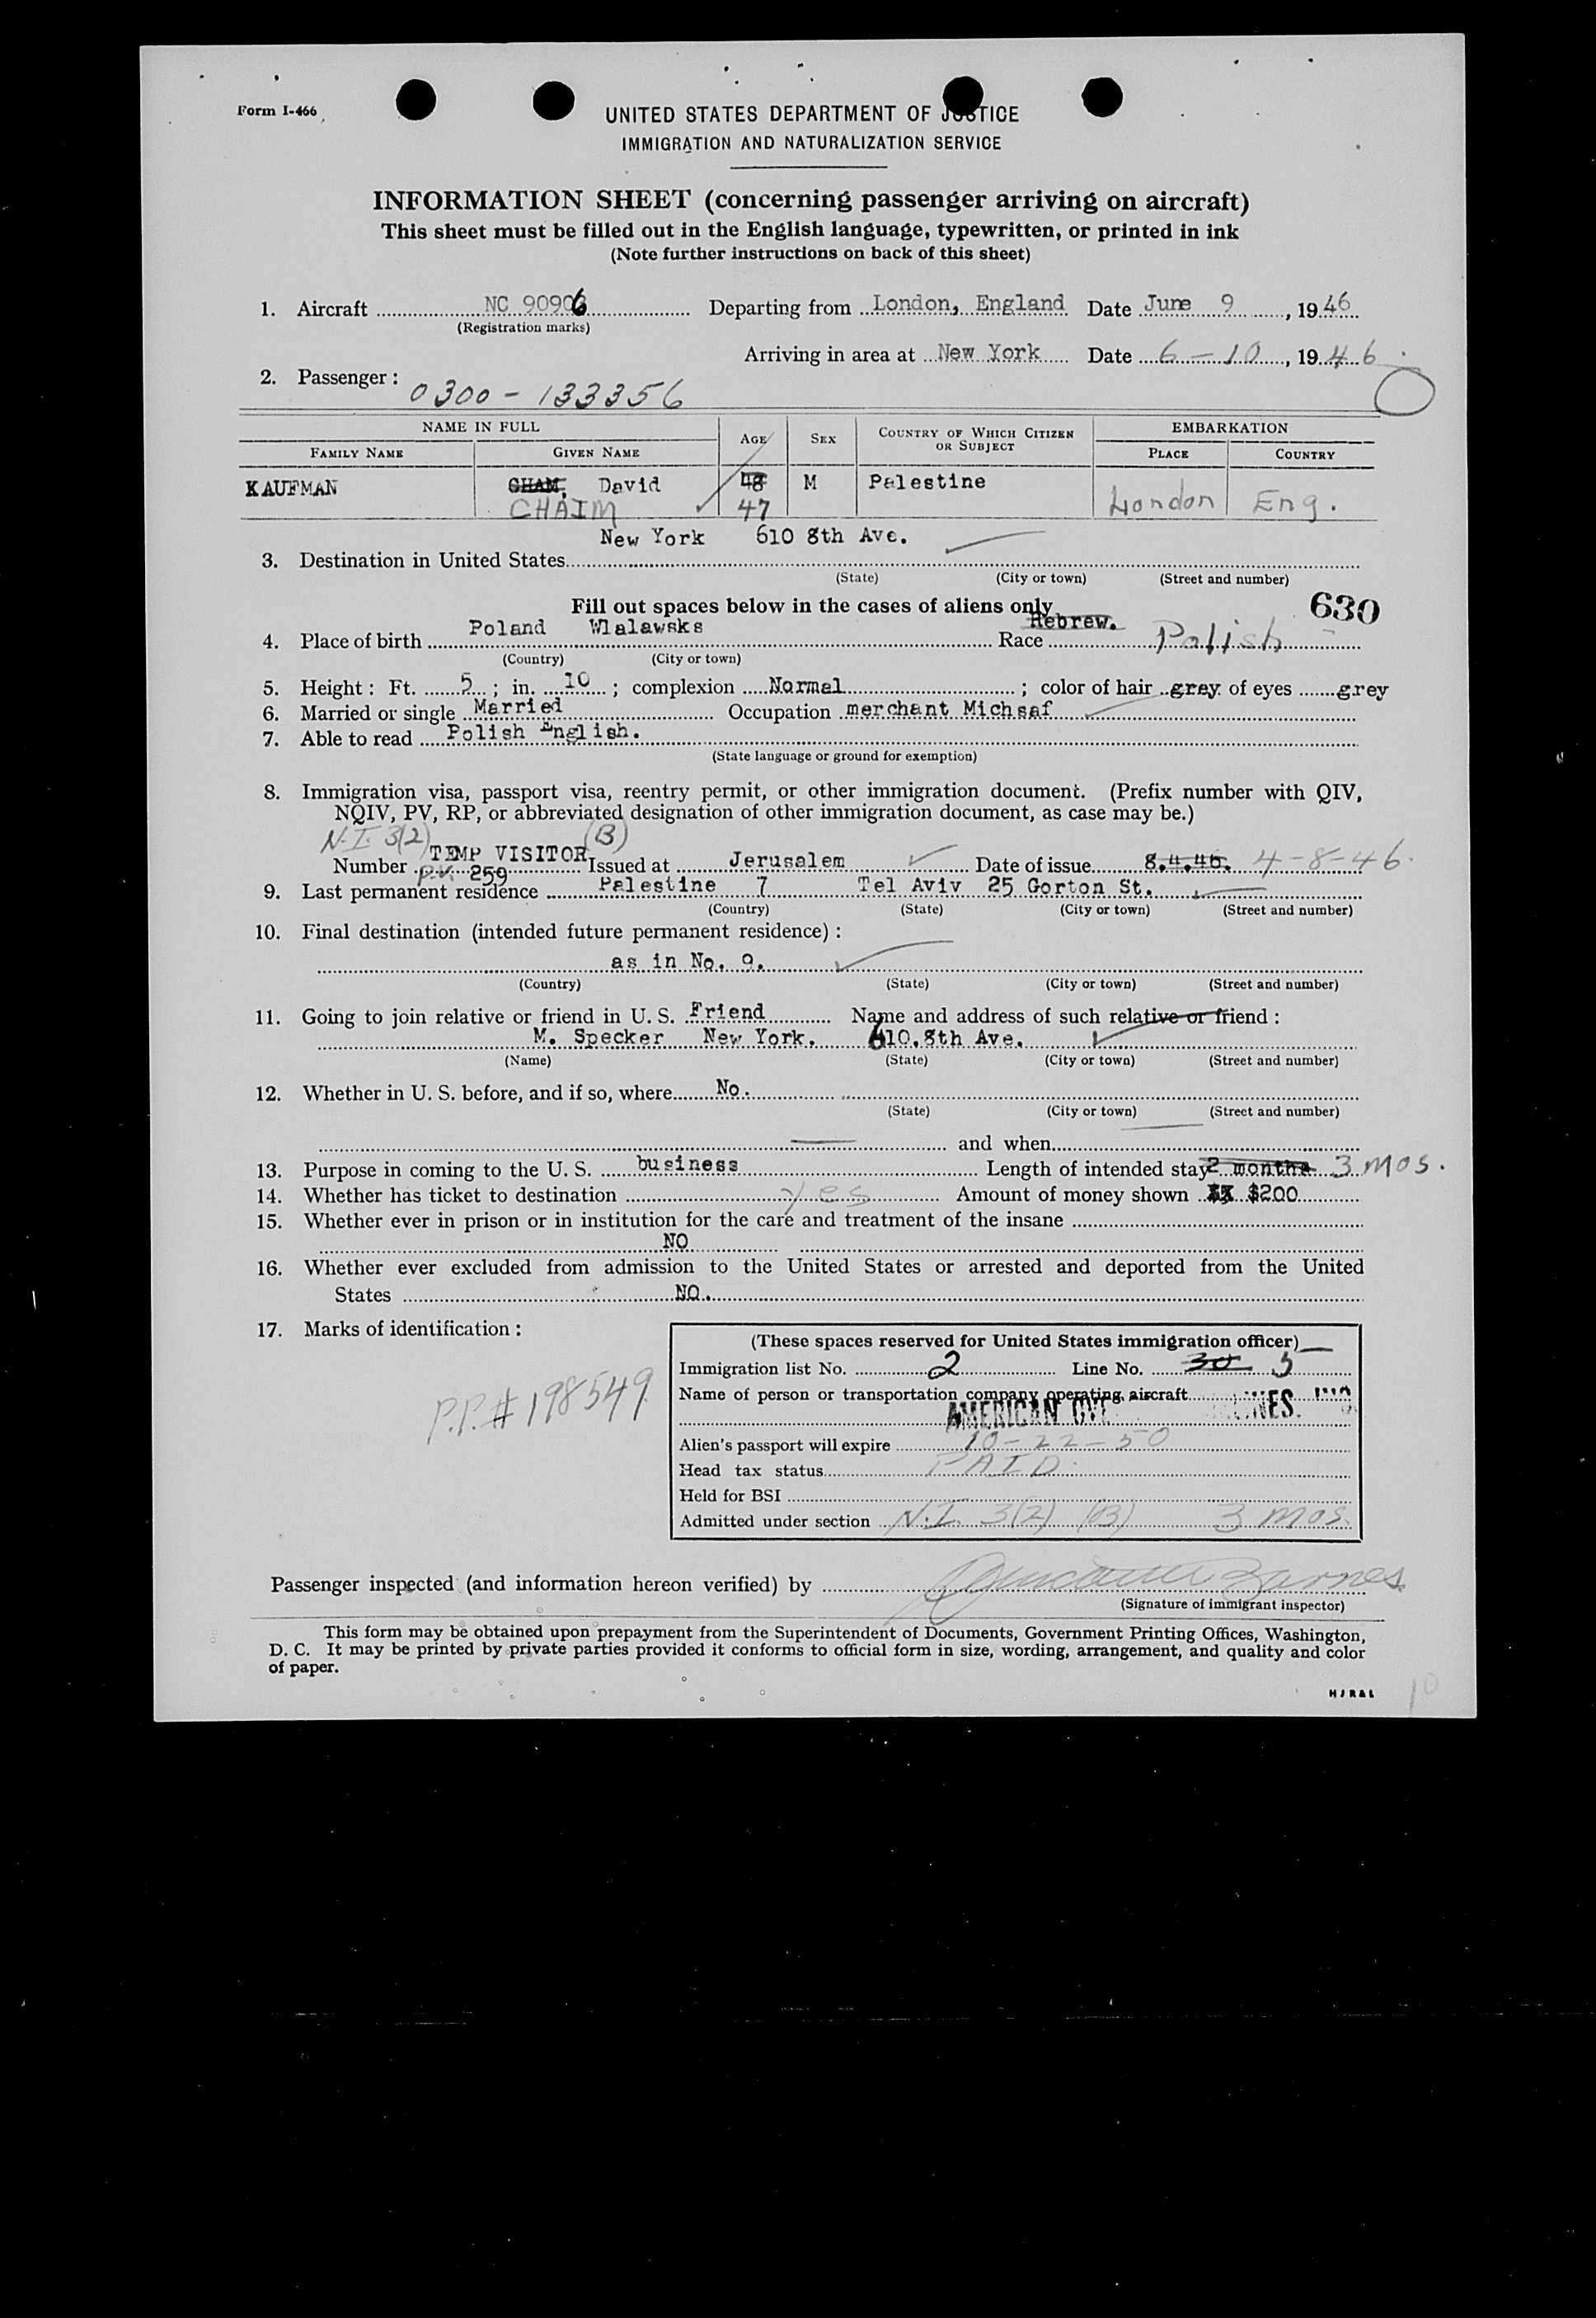 Form I-466
UNITED STATES DEPARTMENT OF JUSTICE
IMMIGRATION AND NATURALIZATION SERVICE
INFORMATION SHEET (concerning passenger arriving on aircraft)
This sheet must be filled out in the English language, typewritten, or printed in ink
(Note further instructions on back of this sheet)
1. Aircraft NC 90906 Departing from London, England Date June 9, 1946
(Registration marks)
Arriving in area at New York Date 6-10, 1946
2. Passenger: 0300-133356
NAME IN FULL AGE SEX COUNTRY OF WHICH CITIZEN OR SUBJECT EMBARKATION
FAMILY NAME GIVEN NAME PLACE COUNTRY
KAUFMAN CHAM, David 48 M Palestine
CHAIM 47 London Eng.
New York 610 8th Ave.
3. Destination in United States
(State) (City or town) (Street and number)
Fill out spaces below in the cases of aliens only 630
4. Place of birth Poland Wlalawsks Race Hebrew. Polish
(Country) (City or town)
5. Height: Ft. 5; in. 10; complexion Normal; color of hair grey of eyes grey
6. Married or single Married Occupation merchant Michsaf
7. Able to read Polish English.
(State language or ground for exemption)
8. Immigration visa, passport visa, reentry permit, or other immigration document. (Prefix number with QIV,
NQIV, PV, RP, or abbreviated designation of other immigration document, as case may be.)
N.I. 3(2) (B)
TEMP VISITOR
Number P.V. 259 Issued at Jerusalem Date of issue 8.4.46. 4-8-46.
9. Last permanent residence Palestine 7 Tel Aviv 25 Gorton St.
(Country) (State) (City or town) (Street and number)
10. Final destination (intended future permanent residence):
as in No. 9.
(Country) (State) (City or town) (Street and number)
11. Going to join relative or friend in U. S. Friend Name and address of such relative or friend:
M. Specker New York. 610.8th Ave.
(Name) (State) (City or town) (Street and number)
12. Whether in U. S. before, and if so, where No.
(State) (City or town) (Street and number)
and when
13. Purpose in coming to the U. S. business Length of intended stay 2 months 3 mos.
14. Whether has ticket to destination yes Amount of money shown $200
15. Whether ever in prison or in institution for the care and treatment of the insane
NO
16. Whether ever excluded from admission to the United States or arrested and deported from the United
States NO.
17. Marks of identification:
P.P.# 198549
(These spaces reserved for United States immigration officer)
Immigration list No. 2 Line No. 30 5
Name of person or transportation company operating aircraft
AMERICAN
Alien's passport will expire 10-22-50
Head tax status PAID
Held for BSI
Admitted under section N.I. 3(2) (B) 3 mos.
Passenger inspected (and information hereon verified) by Barnes
(Signature of immigrant inspector)
This form may be obtained upon prepayment from the Superintendent of Documents, Government Printing Offices, Washington,
D. C. It may be printed by private parties provided it conforms to official form in size, wording, arrangement, and quality and color
of paper.
H J R & L
10